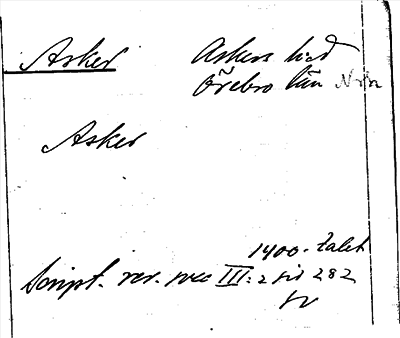 Asker Askers hd
Örebro län Nrk
Asker
1400-talet
Script. rer. svec III: 2 sid 282